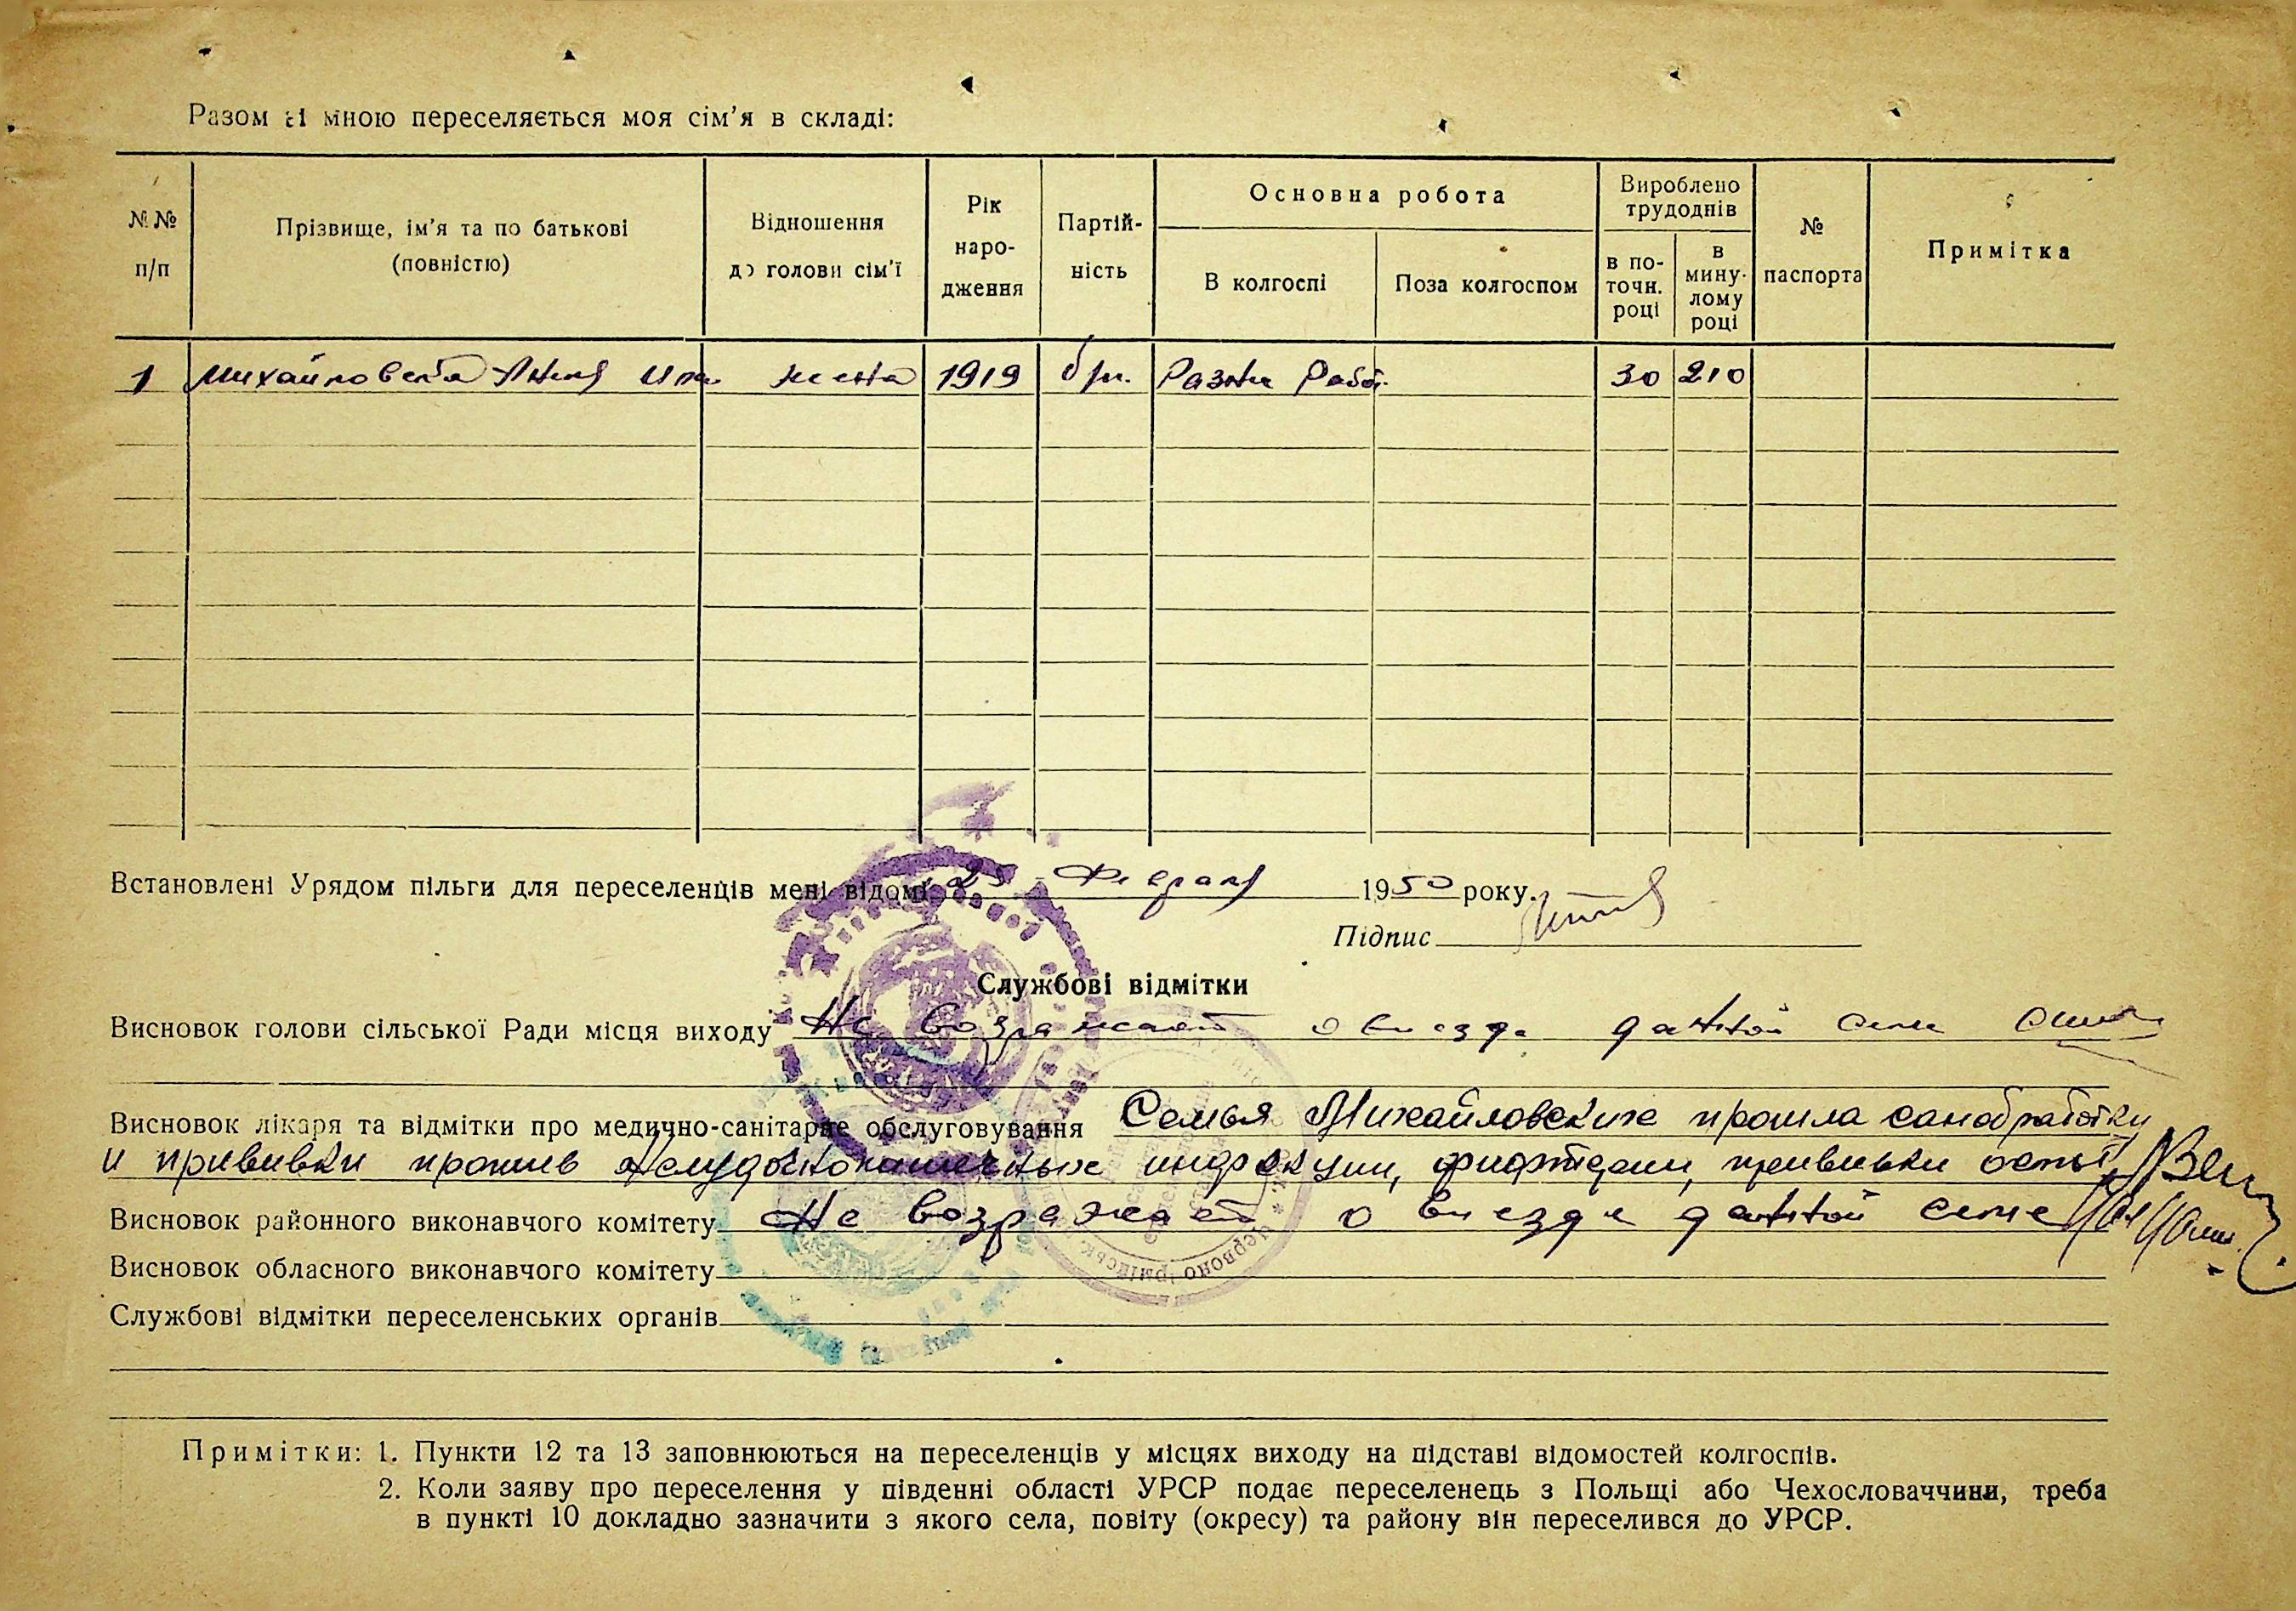 Разом зі мною переселяється моя сім'я в складі:
№№ п/п
Прізвище, ім'я та по батькові (повністю)
Відношення до голови сім'ї
Рік народження
Партійність
Основна робота
В колгоспі
Поза колгоспом
Вироблено трудоднів
в поточн. році
в минулому році
№ паспорта
Примітка
1 Михайловська жена 1919 бп. Разни Рабо. 30 210
Встановлені Урядом пільги для переселенців мені відомі 25 Февраля 1950 року.
Підпис
Службові відмітки
Висновок голови сільської Ради місця виходу Не возражает о виезде данной семе
Висновок лікаря та відмітки про медично-санітарне обслуговування Семья Михайловских прошла санобработку
и прививки против желудочнокишечных инфекции, прививки оспы,
Висновок районного виконавчого комітету Не возражает о виезде данной семе
Висновок обласного виконавчого комітету
Службові відмітки переселенських органів
Примітки: 1. Пункти 12 та 13 заповнюються на переселенців у місцях виходу на підставі відомостей колгоспів.
2. Коли заяву про переселення у південні області УРСР подає переселенець з Польщі або Чехословаччини, треба
в пункті 10 докладно зазначити з якого села, повіту (окресу) та району він переселився до УРСР.